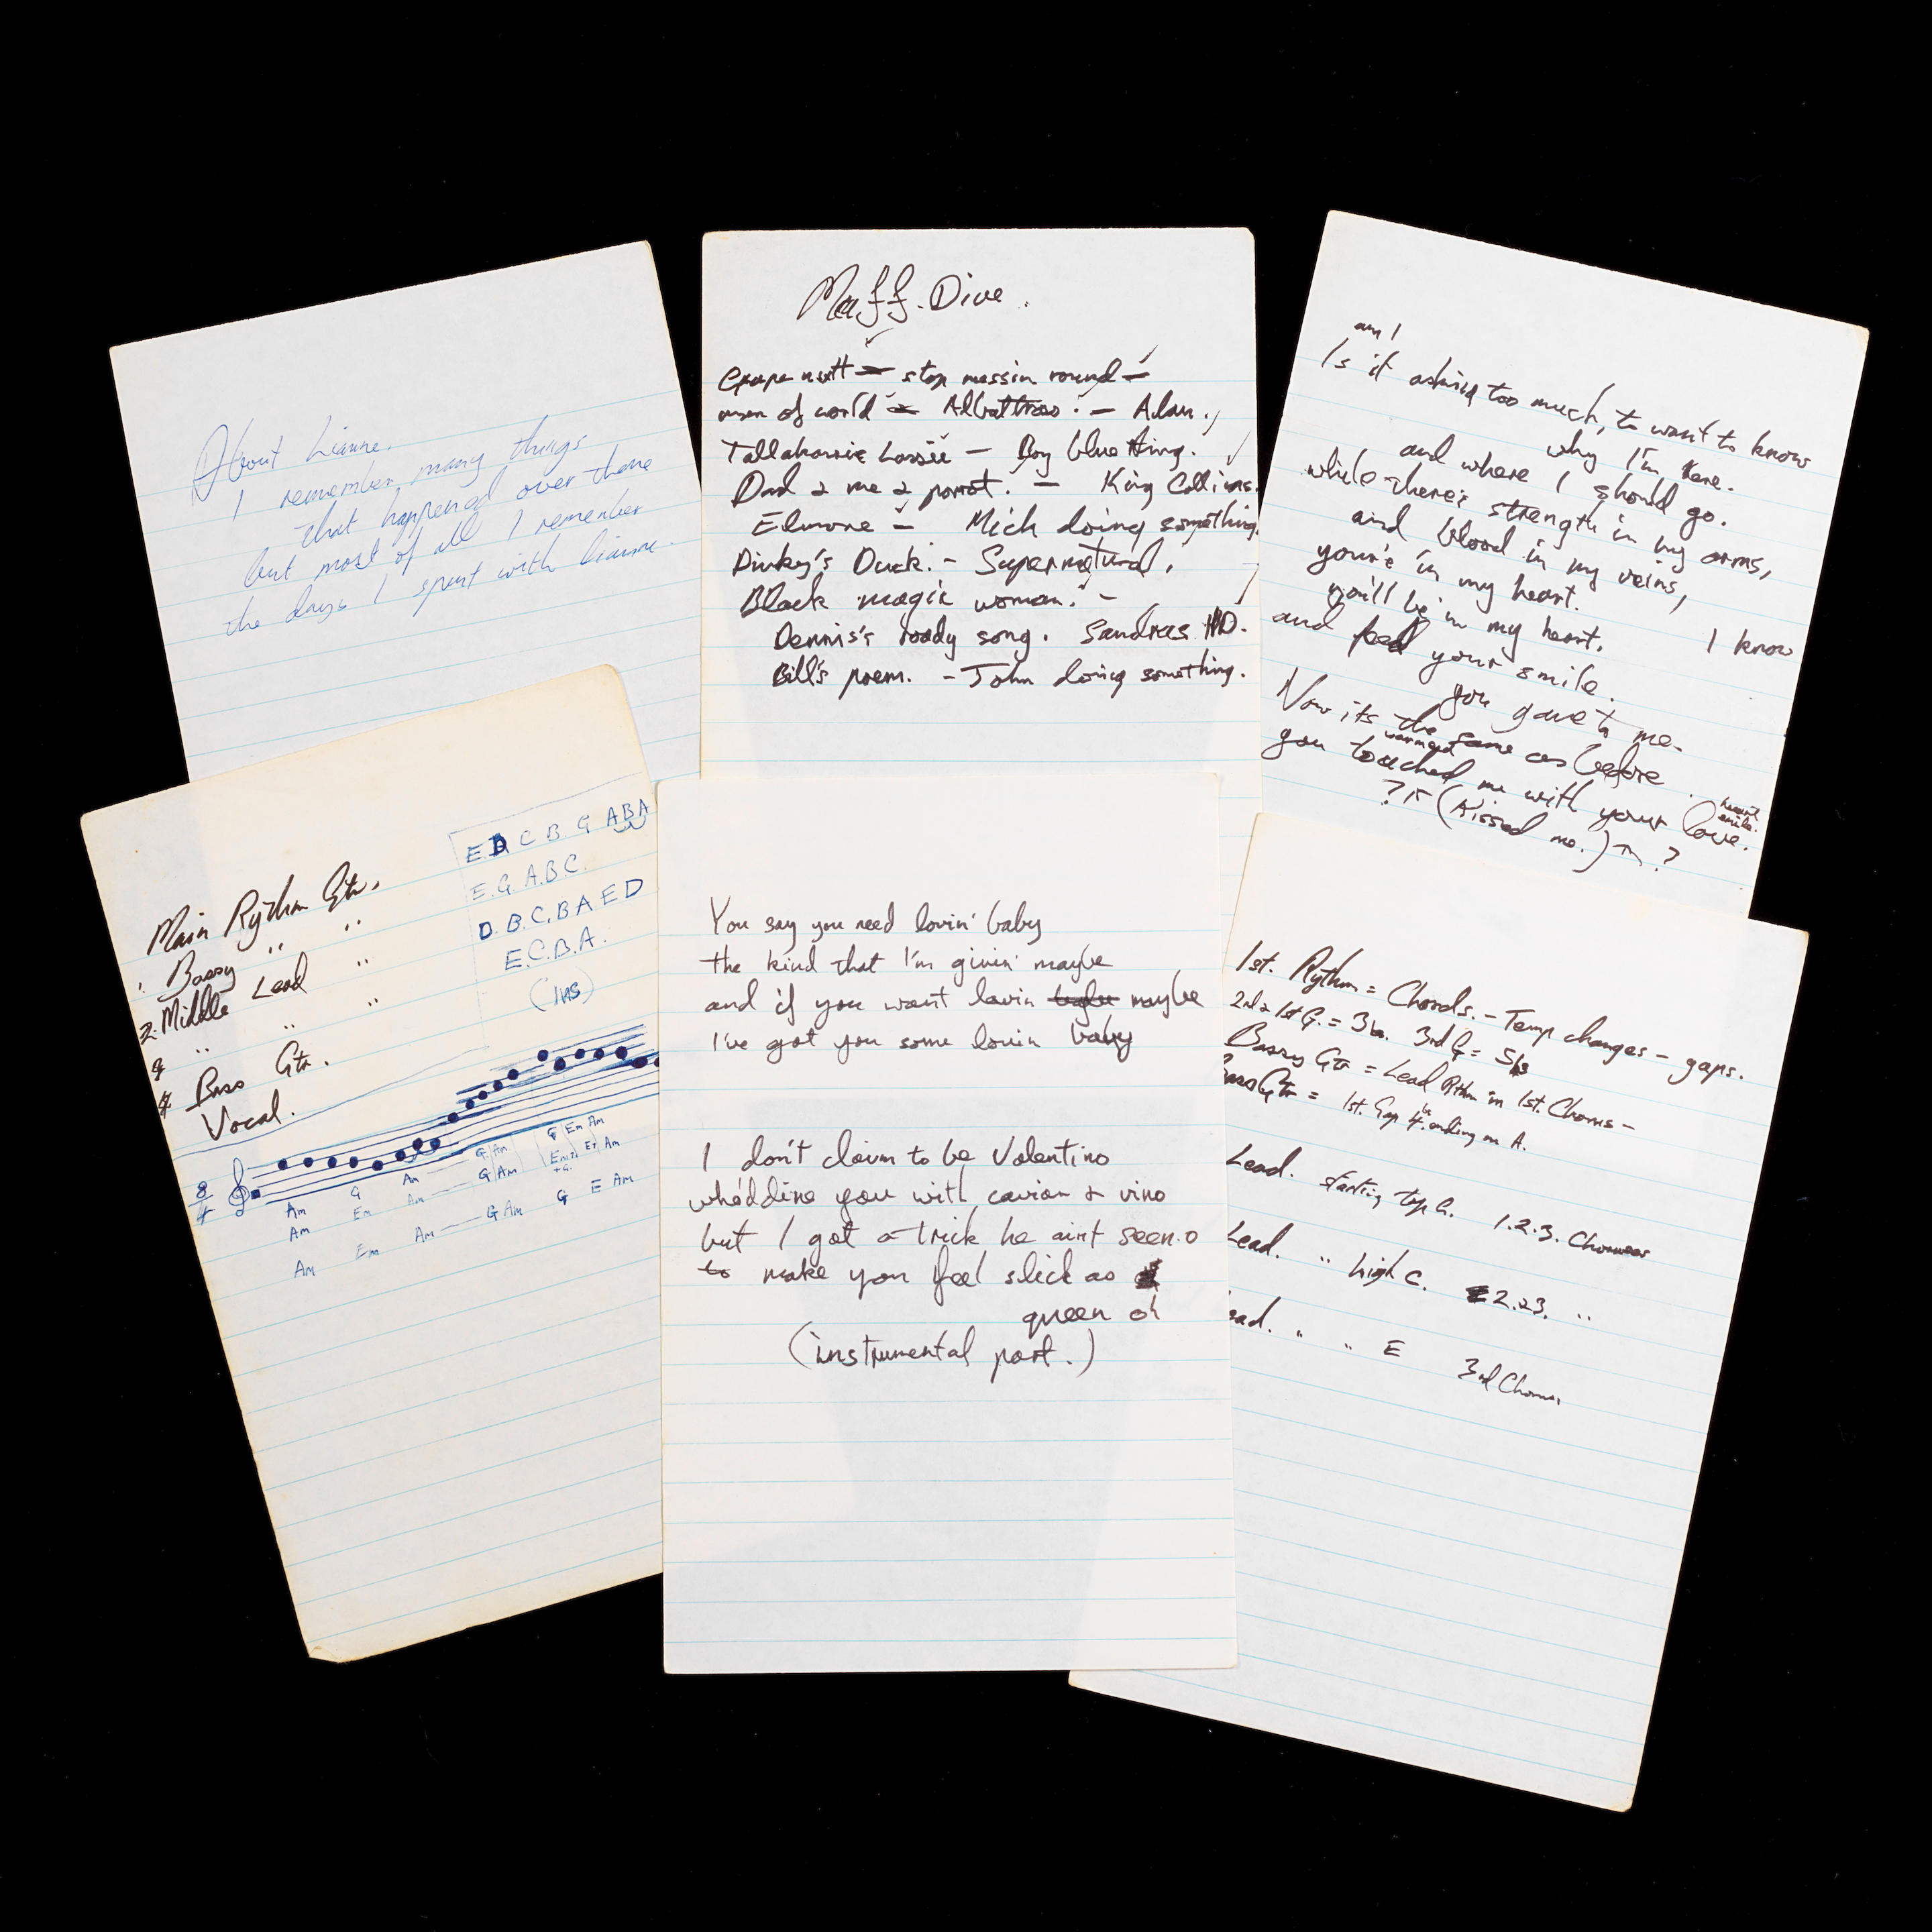 About Lianne.
I remember many things
that happened over there
but most of all I remember
the days I spent with lianne.
Maff. Dive.
Grape nutt - stop messin round -
man of world - Albattross. - Alan.
Tallahassie Lassie - Boy blue thing.
Dad & me & parrot. - King Collins.
Elmore - Mich doing something.
Dinky's Duck. - Supernatural.
Black magic woman. -
Dennis's roady song. Sandras HD.
Bill's poem. - John doing something.
am I
Is it asking too much, to want to know
why I'm here.
and where I should go.
while there's strength in my arms,
and blood in my veins,
your'e in my heart.
you'll be in my heart. I know
and feel your smile.
you gave to me-
Now its the same as before.
warmed
you touched me with your love. heart smile.
? (Kissed me.) ?
Main Rythm Gtr.
1. Bassy " "
2. Middle Lead "
3 " " "
4 Bass Gtr.
Vocal.
E D C B. G A B A
E. G A. B C.
D. B. C. B A E D
E. C. B. A.
(INS)
8/4
Am G Am G Am G Em Am
Am Em Am G Am Em7 E7 Am
+G.
Am Em Am G Am G E Am
You say you need lovin' baby
the kind that I'm givin' maybe
and if you want lovin maybe
I've got you some lovin baby
I don't claim to be Valentino
who'd dine you with caviar & vino
but I got a trick he aint seen o
to make you feel slick as
queen oh
(instrumental part.)
1st. Rythm = Chords. - Temp changes - gaps.
2nd & 1st G. = 3ba. 3rd G = 5bs
Bassy Gtr = Lead Rthm in 1st. Chorus -
Bass Gtr = 1st. Gap 4 ba ending on A.
Lead. starting top G. 1.2.3. Choruses
Lead. " high C. 2.&3. "
ead. " " E 3rd Chorus